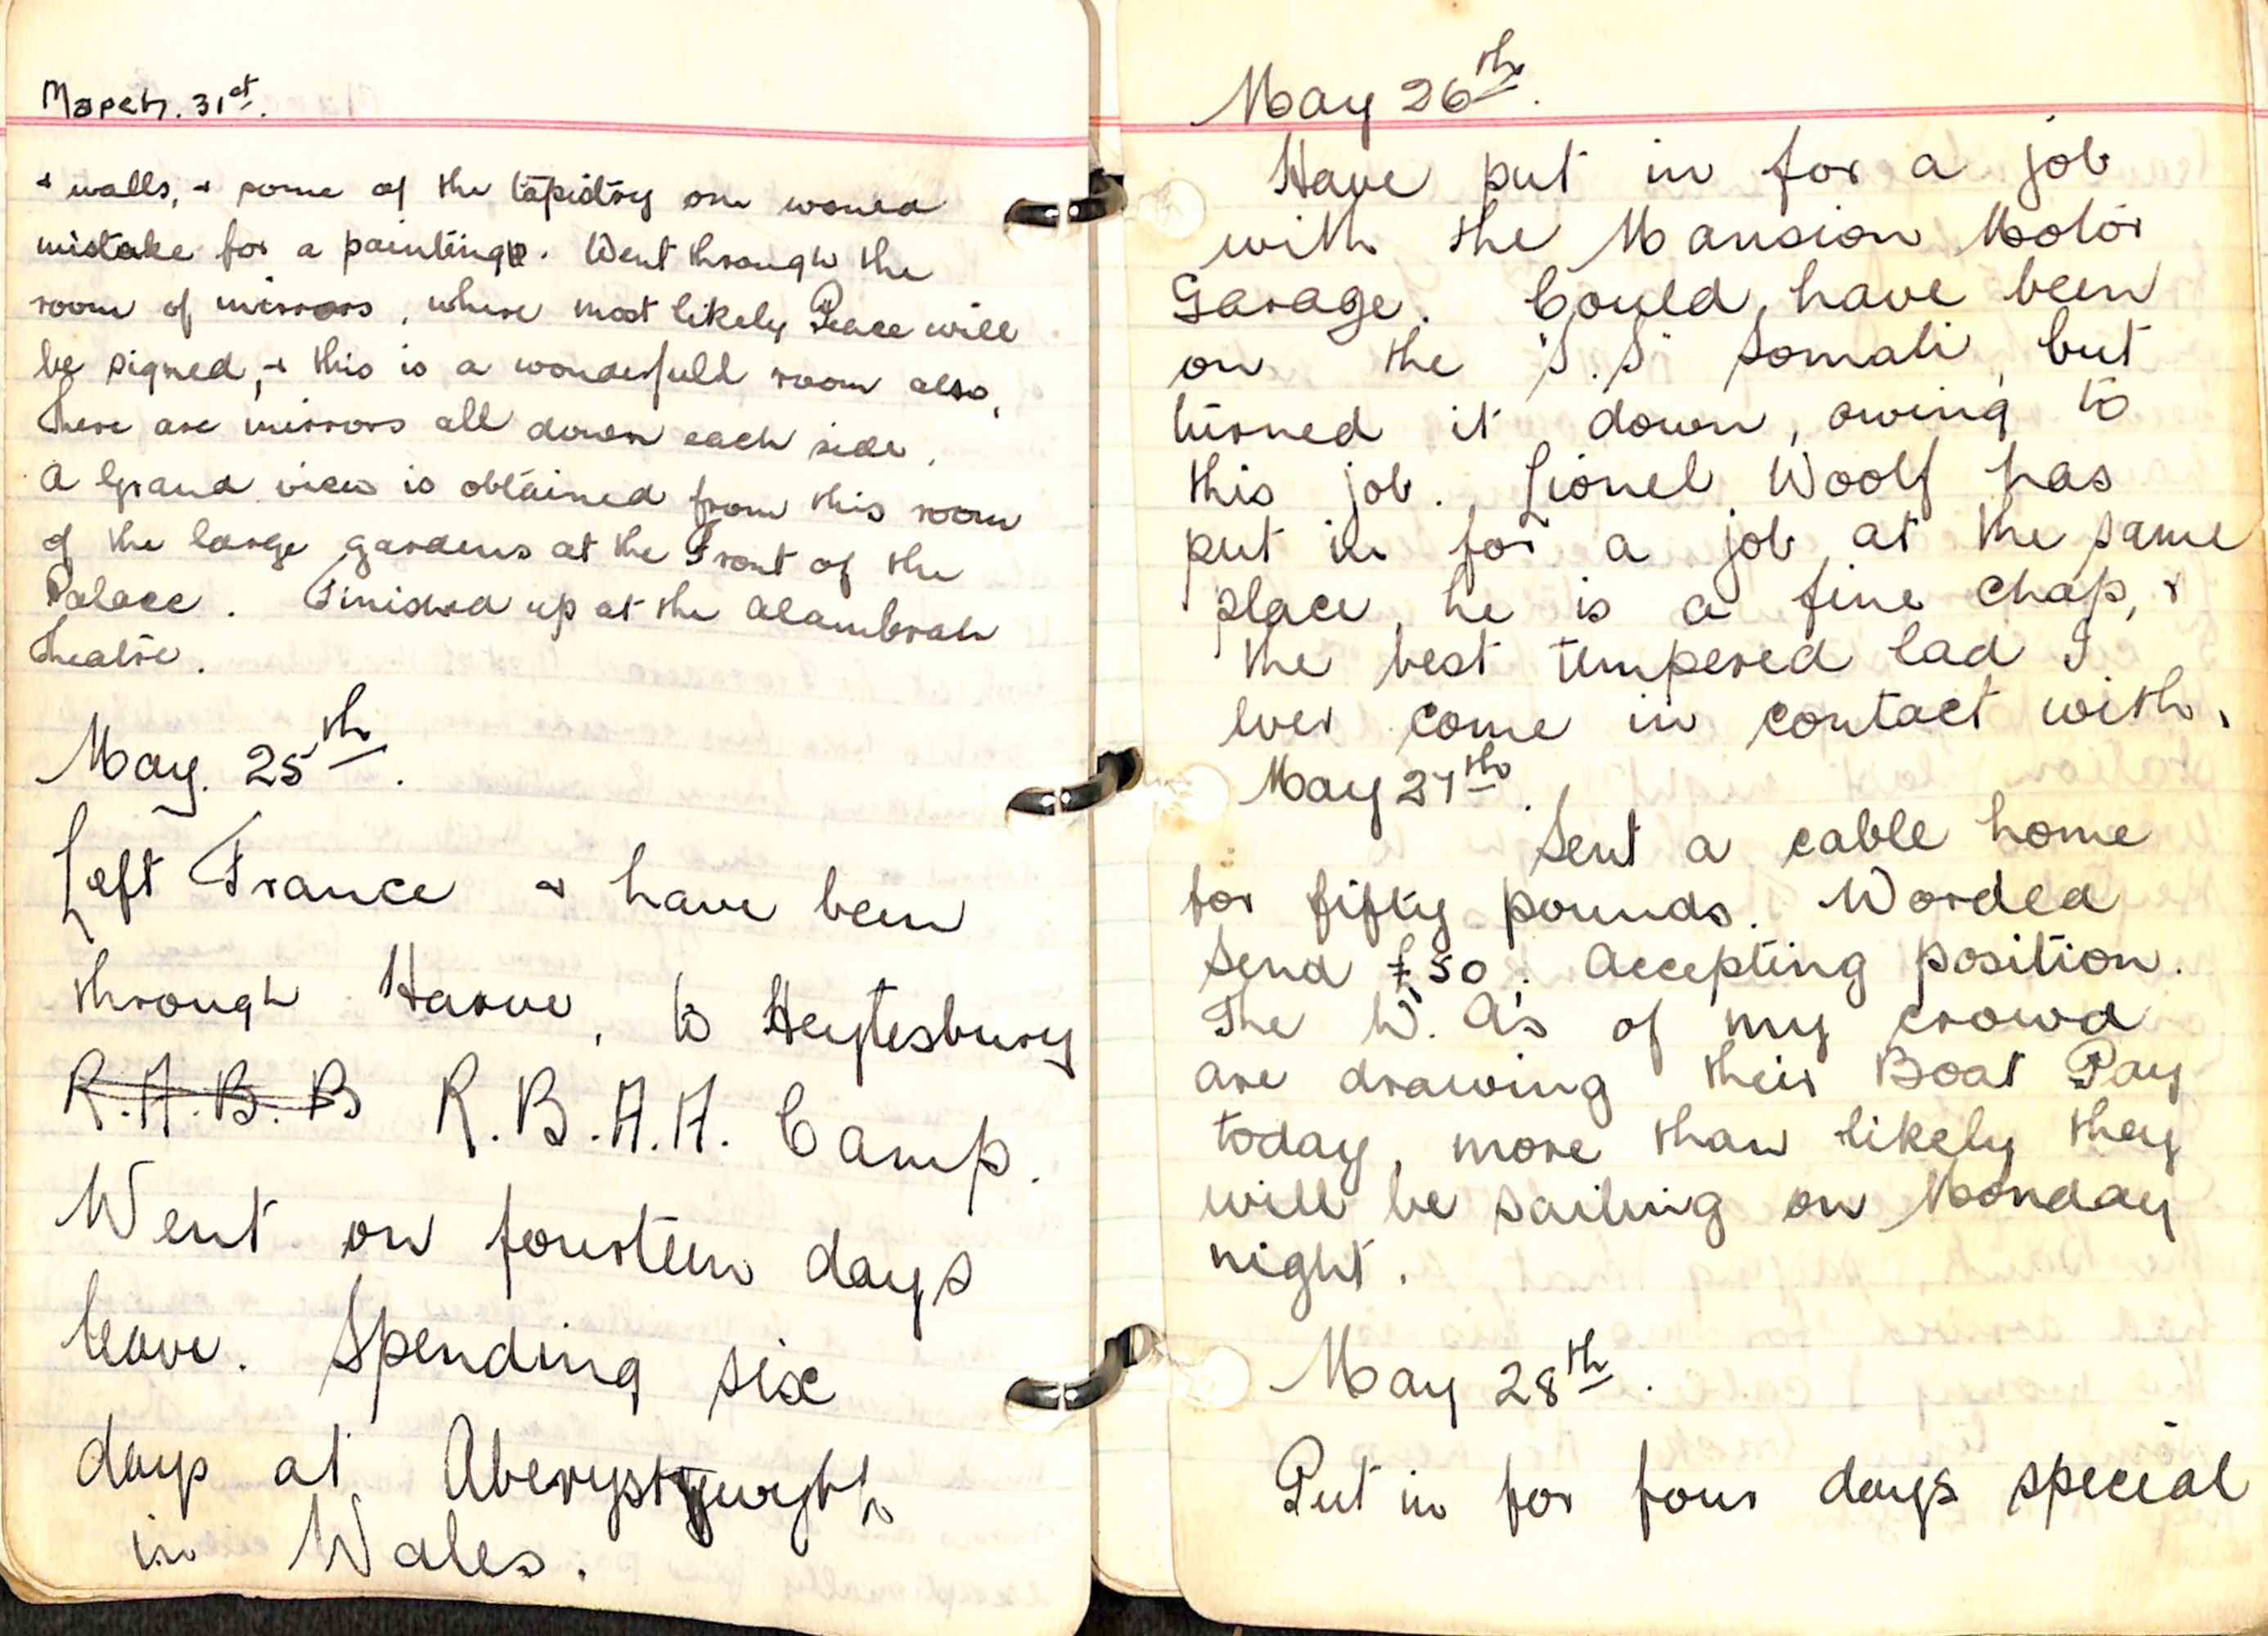 March. 31st.
& walls, & some of the tapistry one would
mistake for a painting. Went through the
room of mirrors, where most likely Peace will
be signed, & this is a wonderfull room also,
there are mirrors all down each side.
A Grand view is obtained from this room
of the large gardens at the Front of the
Palace. Finished up at the Alambrah
Theatre.
May. 25th.
Left France & have been
through Harve, to Heytesbury
R.A.B.B R.B.A.A. Camp.
Went on fourteen days
leave. Spending six
days at Aberystywyth
in Wales.
May 26th.
Have put in for a job
with the Mansion Motor
Garage. Could have been
on the "S.S" Somali, but
turned it down, owing to
this job. Lionel Woolf has
put in for a job at the same
place, he is a fine chap, &
the best tempered lad I
ever come in contact with.
May 27th.
Sent a cable home
for fifty pounds. Worded
Send £50. Accepting position.
The W. A's of my crowd
are drawing their Boat Pay
today, more than likely they
will be sailing on Monday
night.
May 28th.
Put in for four days special